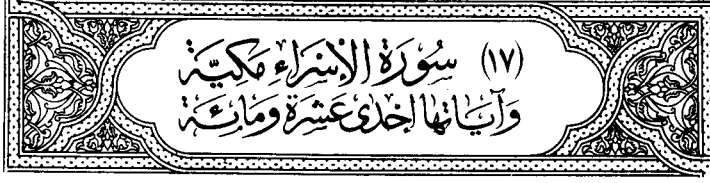 (١٧) سُورَة الإسْرَاءِ مَكيَّة
وَآيَاتها إحْدَى عَشرَة وَمائِة